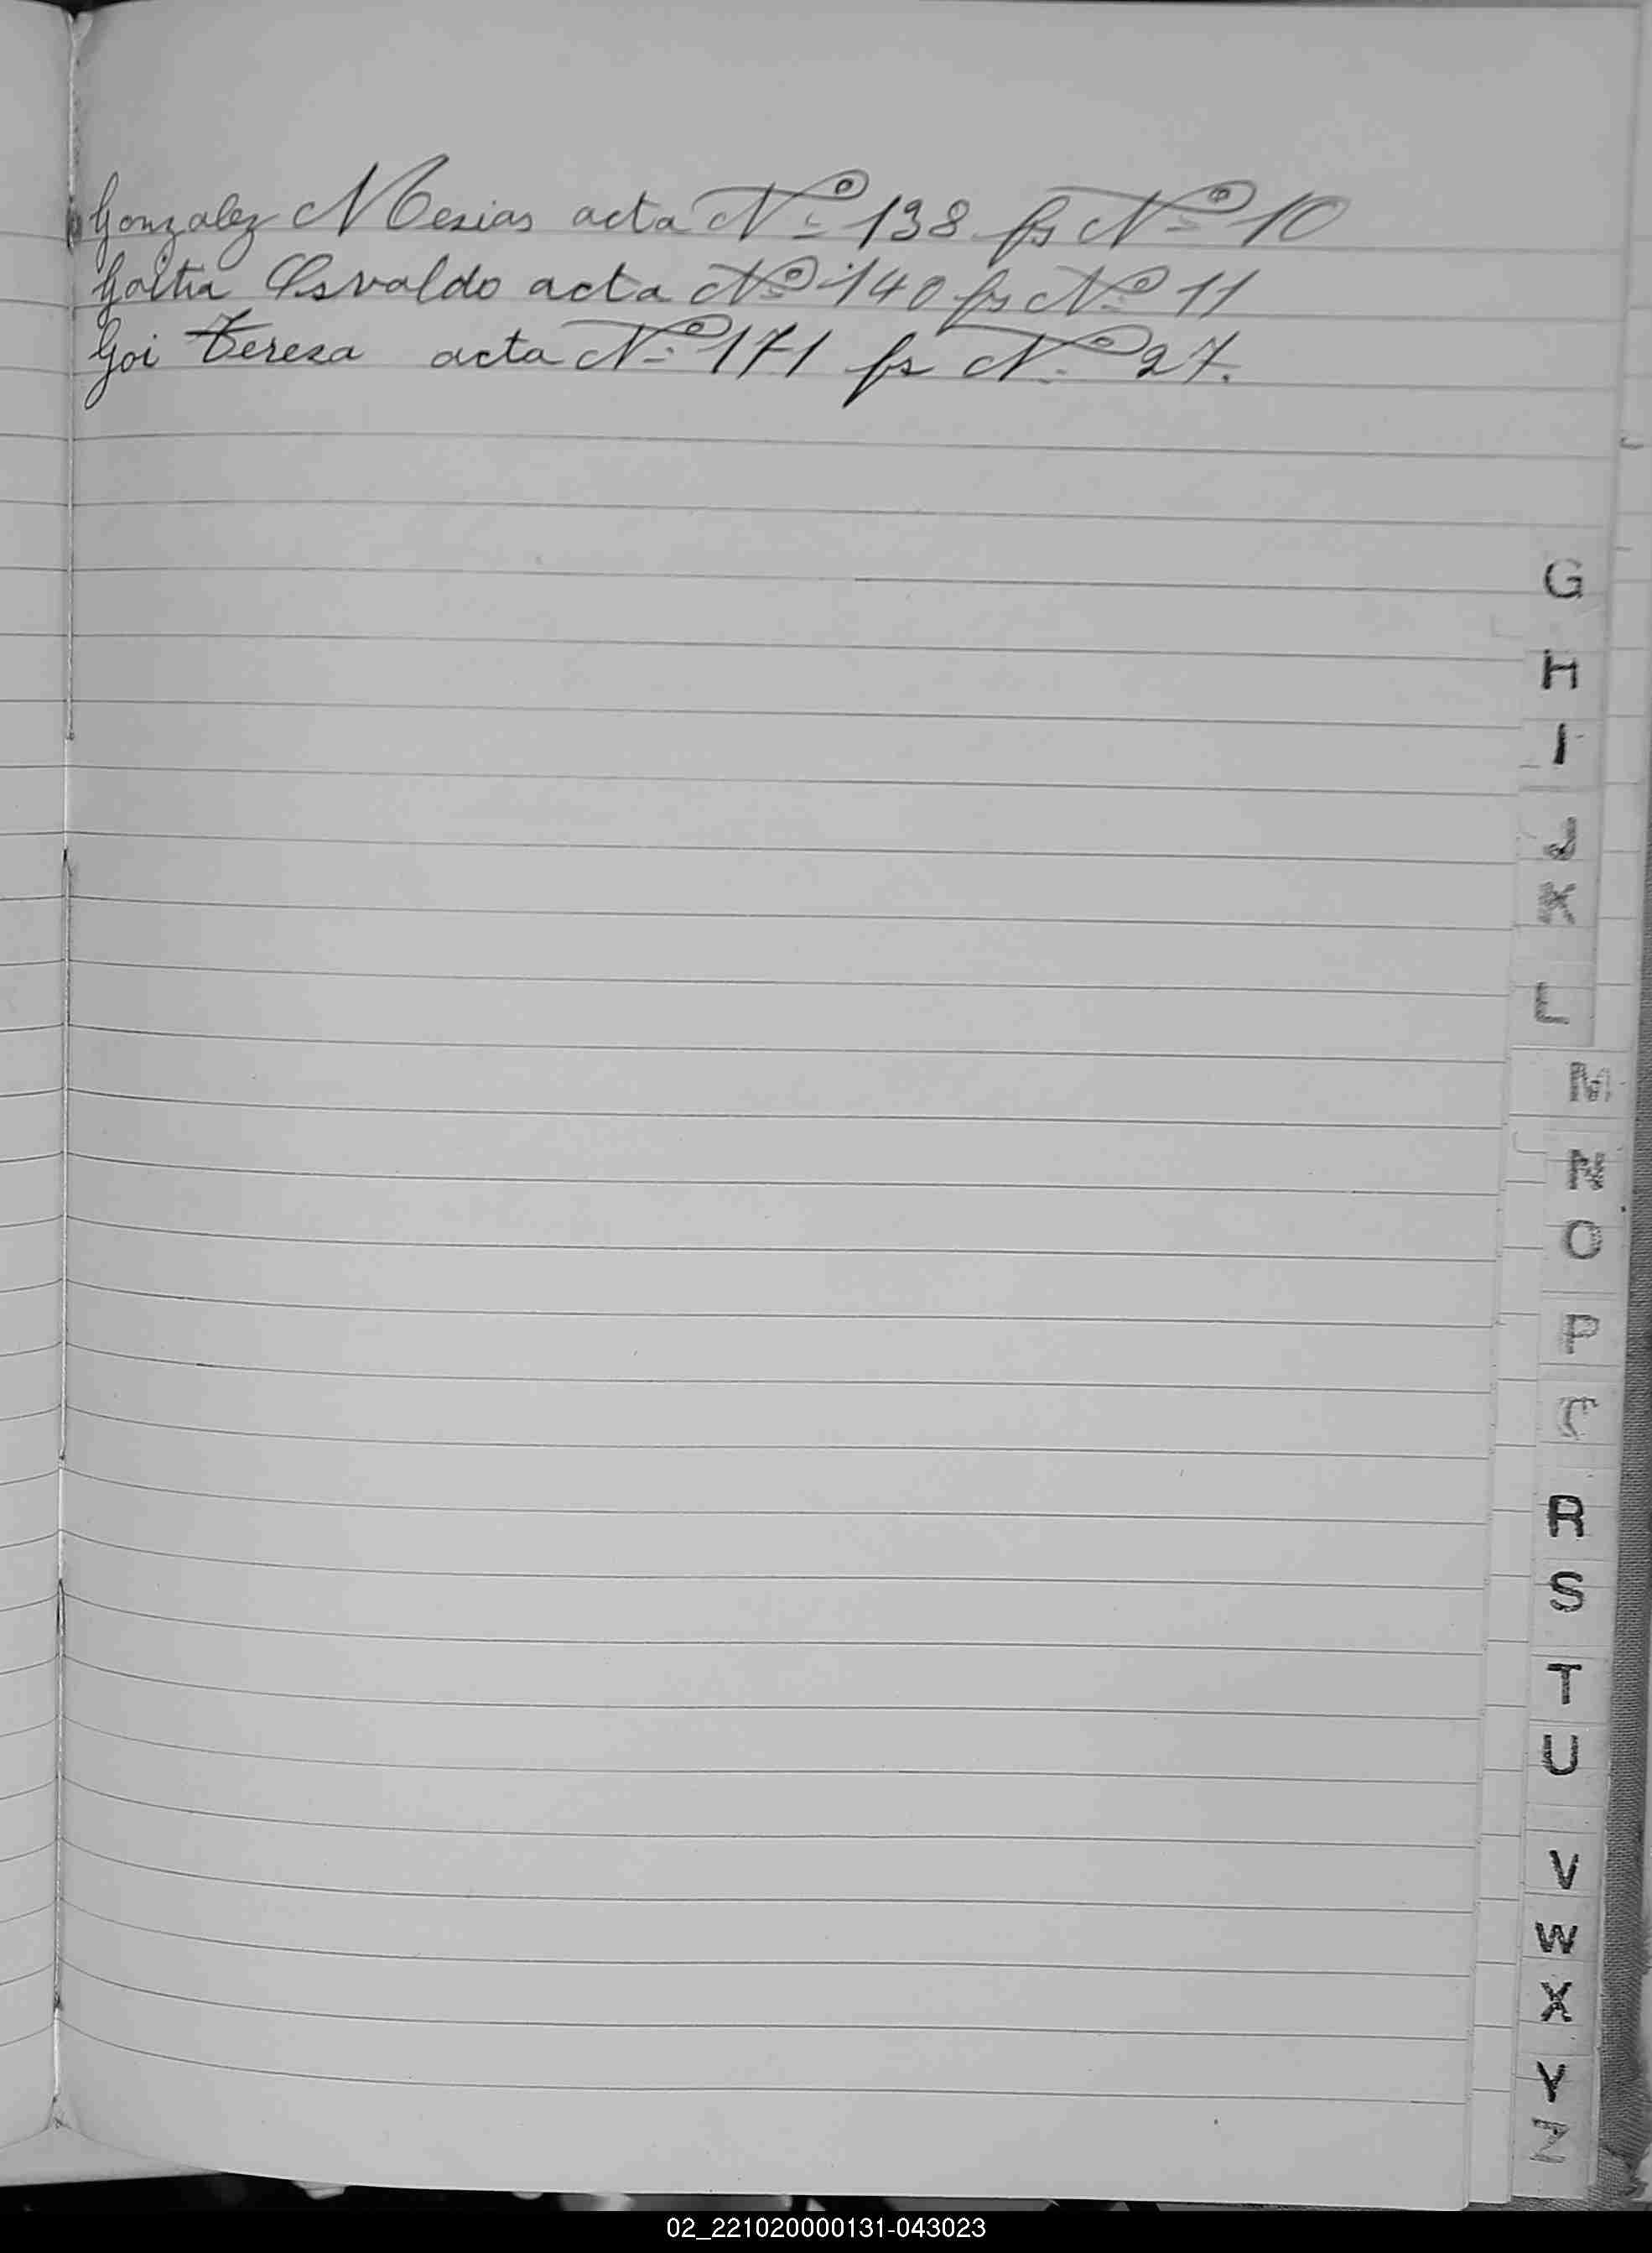 Gonzalez Mesias acta Nº 138 fs Nº 10
Goitia Osvaldo acta Nº 140 fs Nº 11
Goi Teresa acta Nº 171 fs Nº 27.
G
H
I
J
K
L
M
N
O
P
R
S
T
U
V
W
X
Y
Z
02_221020000131-043023